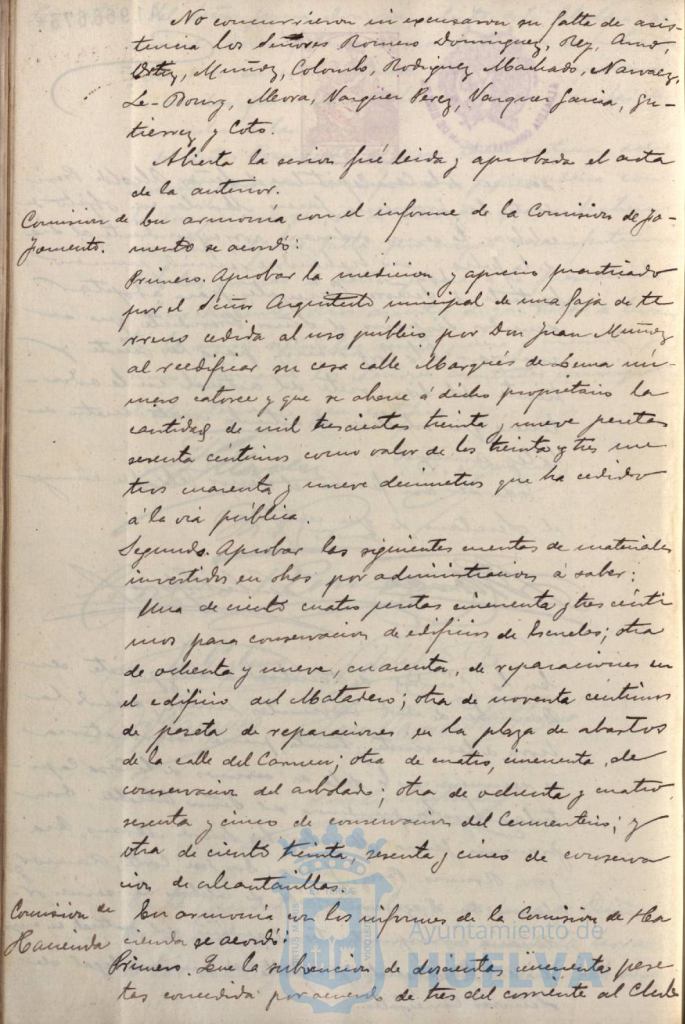 No concurrieron ni excusaron su falta de asis-
tencia los Señores Romero Dominguez, Rey, Amo,
Ortiz, Muñoz, Colombo, Rodriguez Machado, Narvaez,
Le-Bourg, Mora, Vazquez Perez, Vazquez Garcia, Gu-
tierrez y Coto.
Abierta la sesion fué leida y aprobada el acta
de la anterior.
Comision de Fomento.
En armonía con el informe de la Comision de Fo-
mento se acordó:
Primero. Aprobar la medicion y aprecio practicado
por el Señor Arquitecto municipal de una faja de te
rreno cedida al uso público por Don Juan Muñoz
al reedificar su casa calle Marqués de Lema nú-
mero catorce y que se abone á dicho propietario la
cantidad de mil trescientas treinta y nueve pesetas
sesenta céntimos como valor de los treinta y tres me
tros cuarenta y nueve decimetros que ha cedido
á la via pública.
Segundo. Aprobar las siguientes cuentas de materiales
invertidos en obras por administracion á saber:
Una de ciento cuatro pesetas cincuenta y tres cénti
mos para conservacion de edificios de Escuelas; otra
de ochenta y nueve, cuarenta, de reparaciones en
el edificio del Matadero; otra de noventa centimos
de peseta de reparaciones en la plaza de abastos
de la calle del Carmen; otra de cuatro, cincuenta, de
conservacion del arbolado; otra de ochenta y cuatro,
sesenta y cinco de conservacion del Cementerio; y
otra de ciento treinta, sesenta y cinco de conserva
cion de alcantarillas.
Comision de Hacienda
En armonía con los informes de la Comision de Ha
cienda se acordó:
Primero. Que la subvencion de doscientas cincuenta pese
tas concedida por acuerdo de tres del corriente al Club
Ayuntamiento de
HUELVA